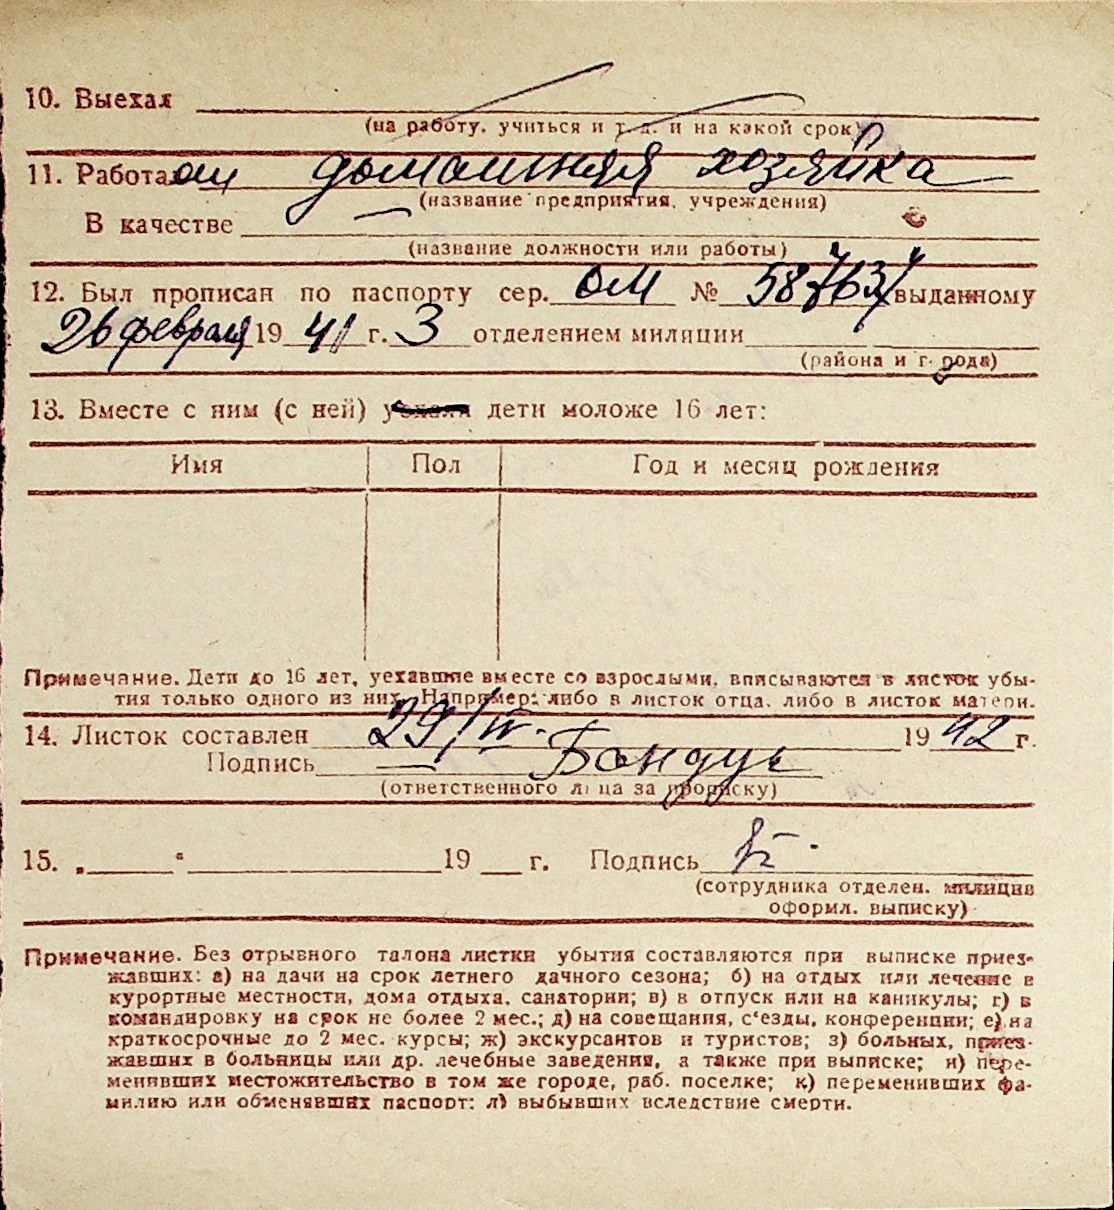 10. Выехал
(на работу, учиться и т. д. и на какой срок)
11. Работал домашняя хозяйка
(название предприятия, учреждения)
В качестве —
(название должности или работы)
12. Был прописан по паспорту сер. ОМ № 587637 выданному
26 февраля 1941 г. 3 отделением милиции
(района и города)
13. Вместе с ним (с ней) уехали дети моложе 16 лет:
Имя Пол Год и месяц рождения
Примечание. Дети до 16 лет, уехавшие вместе со взрослыми, вписываются в листок убы-
тия только одного из них. Например: либо в листок отца, либо в листок матери.
14. Листок составлен 29/IV. 1942 г.
Подпись — Бондук
(ответственного лица за прописку)
15. „ “ 19 г. Подпись
(сотрудника отделен. милиции
оформл. выписку)
Примечание. Без отрывного талона листки убытия составляются при выписке приез-
жавших: а) на дачи на срок летнего дачного сезона; б) на отдых или лечение в
курортные местности, дома отдыха, санатории; в) в отпуск или на каникулы; г) в
командировку на срок не более 2 мес.; д) на совещания, с'езды, конференции; е) на
краткосрочные до 2 мес. курсы; ж) экскурсантов и туристов; з) больных, приез-
жавших в больницы или др. лечебные заведения, а также при выписке; и) пере-
менивших местожительство в том же городе, раб. поселке; к) переменивших фа-
милию или обменявших паспорт; л) выбывших вследствие смерти.